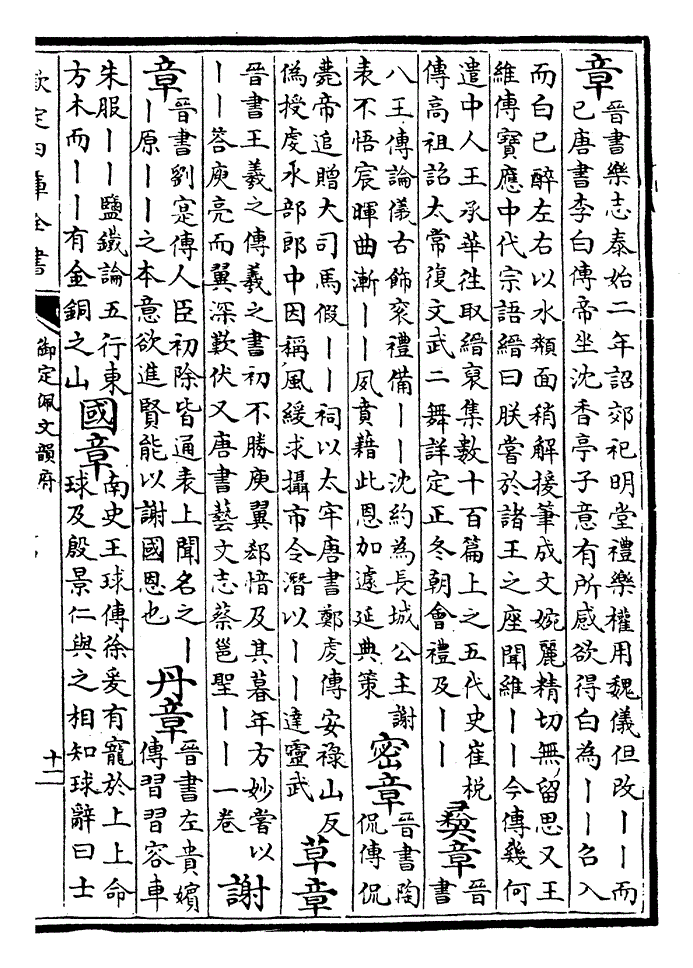 章
晉書樂志泰始二年詔郊祀明堂禮樂權用魏儀但改丨丨而
已唐書李白傳帝坐沈香亭子意有所感欲得白為丨丨召入
而白已醉左右以水頮面稍解援筆成文婉麗精切無留思又王
維傳寶應中代宗語縉曰朕嘗於諸王之座聞維丨丨今傳幾何
遣中人王承華往取縉裒集數十百篇上之五代史崔梲
傳高祖詔太常復文武二舞詳定正冬朝會禮及丨丨
彛章
晉
書
八王傳論儀古飾衮禮備丨丨沈約為長城公主謝
表不悟宸暉曲漸丨丨夙賁藉此恩加遽延典策
密章
晉書陶
侃傳侃
薨帝追贈大司馬假丨丨祠以太牢唐書鄭虔傳安祿山反
偽授虔水部郎中因稱風緩求攝市令潛以丨丨達靈武
草章
晉書王羲之傳羲之書初不勝庾翼郄愔及其暮年方妙嘗以
丨丨答庾亮而翼深歎伏又唐書藝文志蔡邕聖丨丨一卷
謝
章
晉書劉寔傳人臣初除皆通表上聞名之丨
丨原丨丨之本意欲進賢能以謝國恩也
丹章
晉書左貴嬪
傳習習容車
朱服丨丨鹽鐵論五行東
方木而丨丨有金銅之山
國章
南史王球傳徐爰有寵於上上命
球及殷景仁與之相知球辭曰士
欽定四庫全書
御定佩文韻府
十二